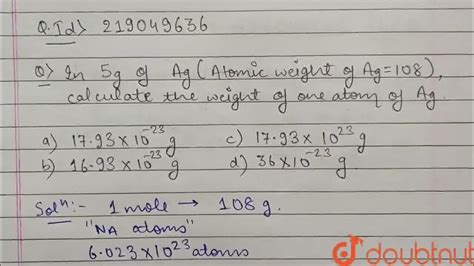 Q.Id> 219049636
Q> In 5g of Ag (Atomic weight of Ag=108),
calculate the weight of one atom of Ag.
a) 17.93×10⁻²³ g c) 17.93×10²³ g
b) 16.93×10⁻²³ g d) 36×10⁻²³ g.
Solⁿ:- 1 mole → 108 g.
"NA atoms"
6.023×10²³ atoms
doubtnut